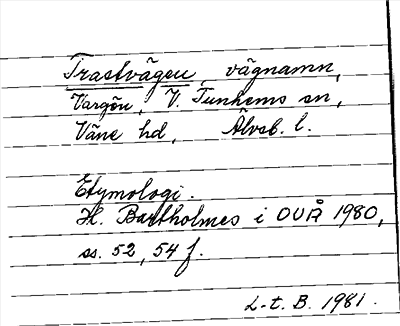 Trastvägen, vägnamn,
Vargön, V. Tunhems sn,
Väne hd, Älvsb. l.
Etymologi.
H. Bartholmes i OUÅ 1980,
ss. 52, 54 f.
L-t. B. 1981.